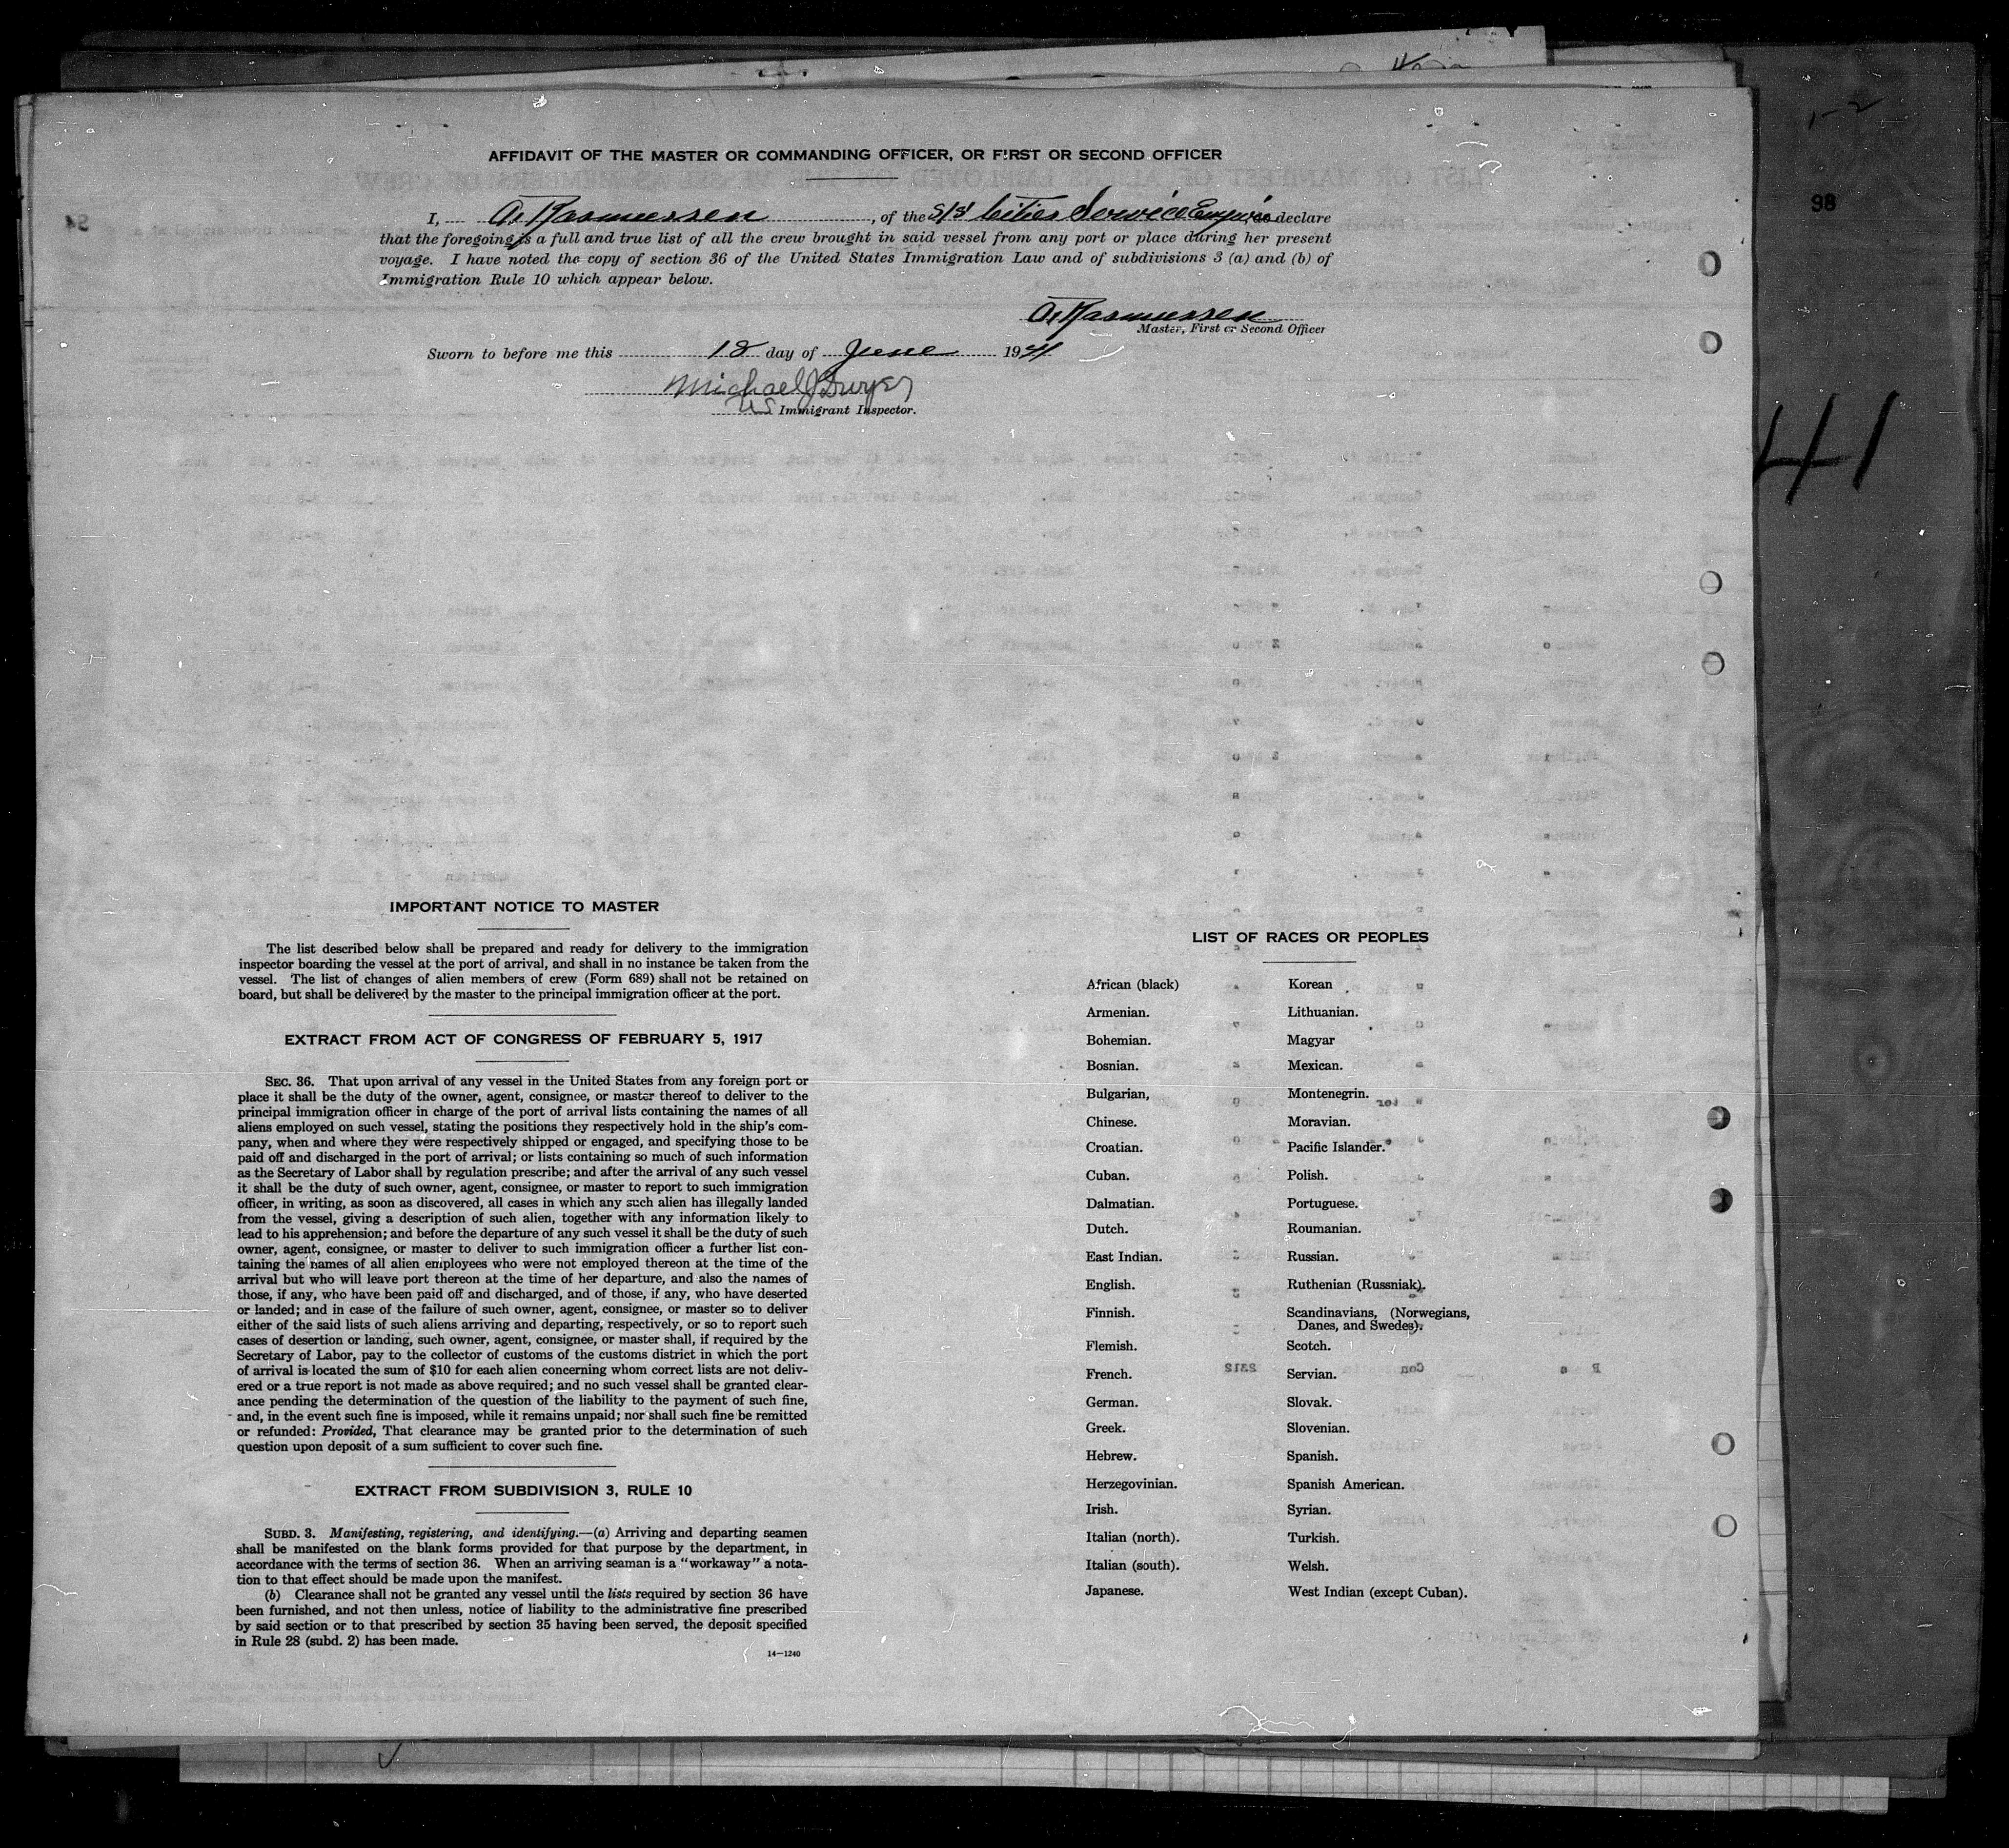 AFFIDAVIT OF THE MASTER OR COMMANDING OFFICER, OR FIRST OR SECOND OFFICER
I, A. Rasmussen, of the S/S Cities Service Empire, do declare
that the foregoing is a full and true list of all the crew brought in said vessel from any port or place during her present
voyage. I have noted the copy of section 36 of the United States Immigration Law and of subdivisions 3 (a) and (b) of
Immigration Rule 10 which appear below.
A. Rasmussen
Master, First or Second Officer
Sworn to before me this 18 day of June 1941
Michael J Dwyer
US Immigrant Inspector.
98
41
IMPORTANT NOTICE TO MASTER
The list described below shall be prepared and ready for delivery to the immigration
inspector boarding the vessel at the port of arrival, and shall in no instance be taken from the
vessel. The list of changes of alien members of crew (Form 689) shall not be retained on
board, but shall be delivered by the master to the principal immigration officer at the port.
EXTRACT FROM ACT OF CONGRESS OF FEBRUARY 5, 1917
SEC. 36. That upon arrival of any vessel in the United States from any foreign port or
place it shall be the duty of the owner, agent, consignee, or master thereof to deliver to the
principal immigration officer in charge of the port of arrival lists containing the names of all
aliens employed on such vessel, stating the positions they respectively hold in the ship's com-
pany, when and where they were respectively shipped or engaged, and specifying those to be
paid off and discharged in the port of arrival; or lists containing so much of such information
as the Secretary of Labor shall by regulation prescribe; and after the arrival of any such vessel
it shall be the duty of such owner, agent, consignee, or master to report to such immigration
officer, in writing, as soon as discovered, all cases in which any such alien has illegally landed
from the vessel, giving a description of such alien, together with any information likely to
lead to his apprehension; and before the departure of any such vessel it shall be the duty of such
owner, agent, consignee, or master to deliver to such immigration officer a further list con-
taining the names of all alien employees who were not employed thereon at the time of the
arrival but who will leave port thereon at the time of her departure, and also the names of
those, if any, who have been paid off and discharged, and of those, if any, who have deserted
or landed; and in case of the failure of such owner, agent, consignee, or master so to deliver
either of the said lists of such aliens arriving and departing, respectively, or so to report such
cases of desertion or landing, such owner, agent, consignee, or master shall, if required by the
Secretary of Labor, pay to the collector of customs of the customs district in which the port
of arrival is located the sum of $10 for each alien concerning whom correct lists are not deliv-
ered or a true report is not made as above required; and no such vessel shall be granted clear-
ance pending the determination of the question of the liability to the payment of such fine,
and, in the event such fine is imposed, while it remains unpaid; nor shall such fine be remitted
or refunded: Provided, That clearance may be granted prior to the determination of such
question upon deposit of a sum sufficient to cover such fine.
EXTRACT FROM SUBDIVISION 3, RULE 10
SUBD. 3. Manifesting, registering, and identifying.—(a) Arriving and departing seamen
shall be manifested on the blank forms provided for that purpose by the department, in
accordance with the terms of section 36. When an arriving seaman is a "workaway" a nota-
tion to that effect should be made upon the manifest.
(b) Clearance shall not be granted any vessel until the lists required by section 36 have
been furnished, and not then unless, notice of liability to the administrative fine prescribed
by said section or to that prescribed by section 35 having been served, the deposit specified
in Rule 28 (subd. 2) has been made.
14—1240
LIST OF RACES OR PEOPLES
African (black)
Armenian.
Bohemian.
Bosnian.
Bulgarian,
Chinese.
Croatian.
Cuban.
Dalmatian.
Dutch.
East Indian.
English.
Finnish.
Flemish.
French.
German.
Greek.
Hebrew.
Herzegovinian.
Irish.
Italian (north).
Italian (south).
Japanese.
Korean
Lithuanian.
Magyar
Mexican.
Montenegrin.
Moravian.
Pacific Islander.
Polish.
Portuguese.
Roumanian.
Russian.
Ruthenian (Russniak).
Scandinavians, (Norwegians,
Danes, and Swedes).
Scotch.
Servian.
Slovak.
Slovenian.
Spanish.
Spanish American.
Syrian.
Turkish.
Welsh.
West Indian (except Cuban).